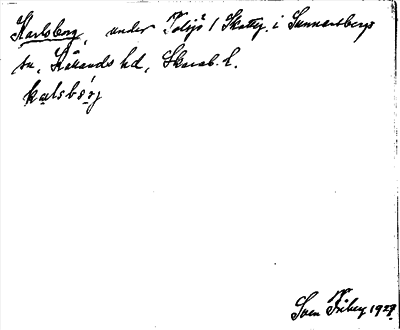 Karlsborg, under Tolsjö 1 Skatteg. i Sunnersbergs
sn, Kållands hd, Skarab. l.
kɑlsbórj
Sven Friberg 1927.